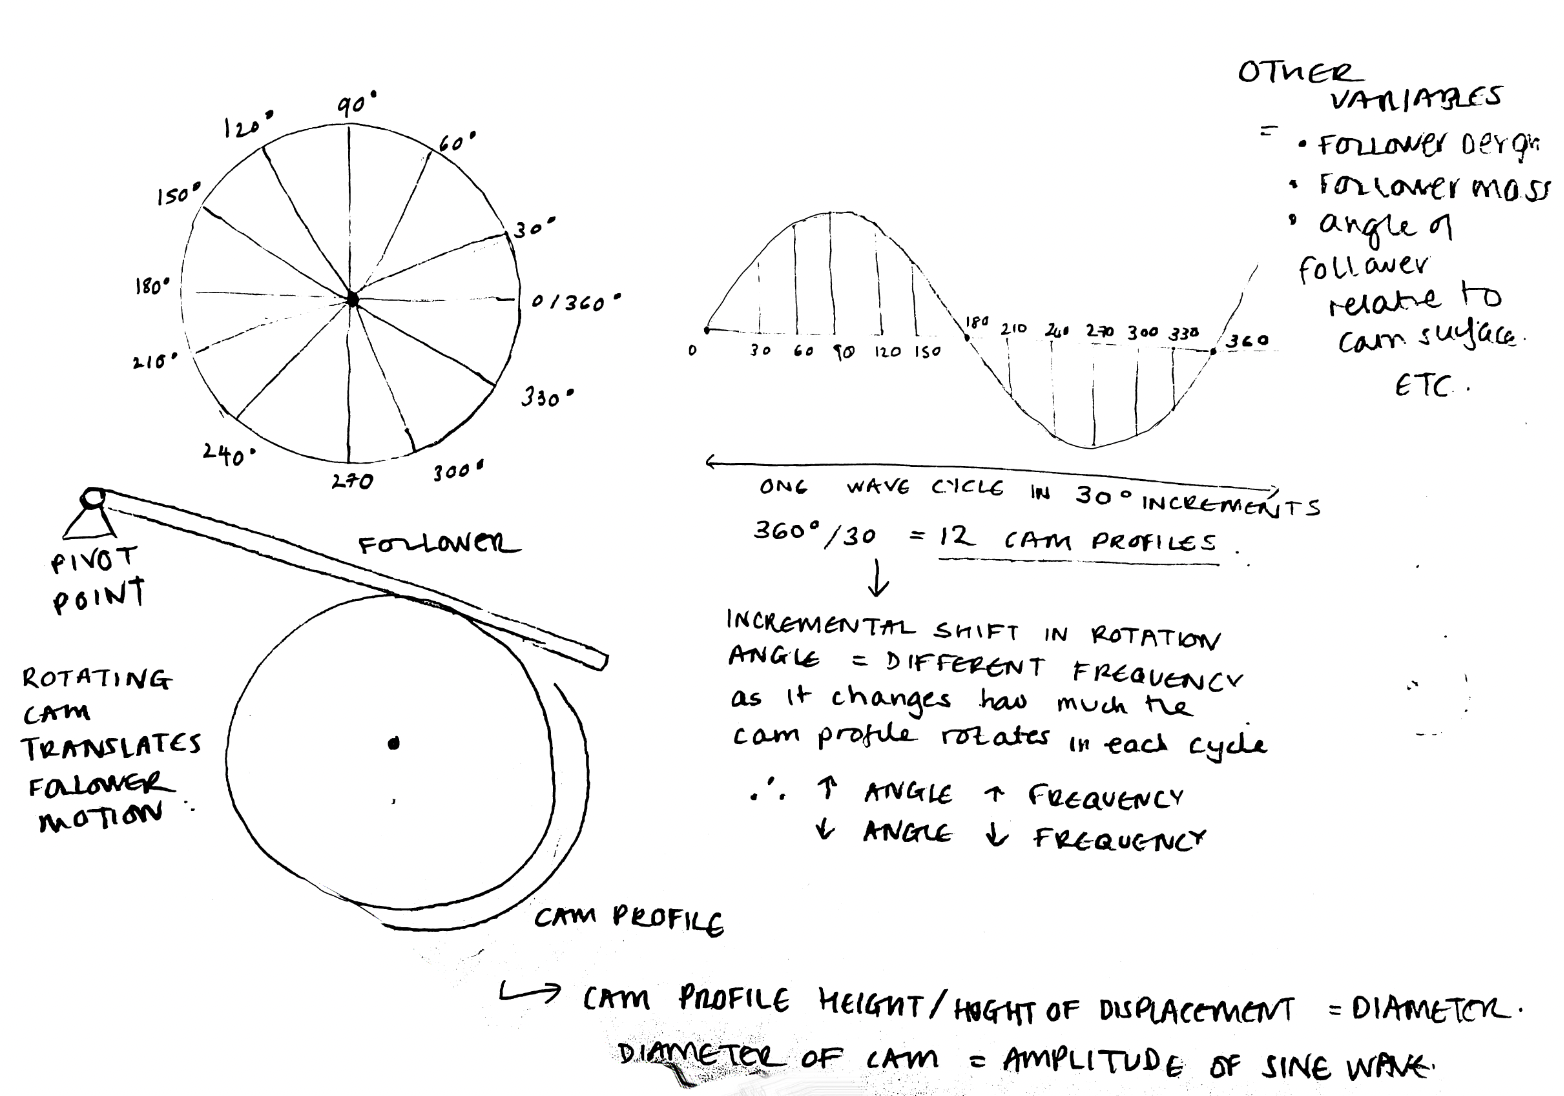 90°
120°
60°
150°
30°
180°
0/360°
210°
330°
240°
300°
270
PIVOT
POINT
FOLLOWER
ROTATING
CAM
TRANSLATES
FOLLOWER
MOTION
CAM PROFILE
0 30 60 90 120 150
180 210 240 270 300 330 360
ONE WAVE CYCLE IN 30° INCREMENTS
360°/30 = 12 CAM PROFILES.
↓
INCREMENTAL SHIFT IN ROTATION
ANGLE = DIFFERENT FREQUENCY
as it changes how much the
cam profile rotates in each cycle
∴ ↑ ANGLE ↑ FREQUENCY
↓ ANGLE ↓ FREQUENCY
OTHER
VARIABLES
=
• FOLLOWER
• FOLLOWER mass
• angle of
follower
relative to
cam surface.
ETC.
↳ CAM PROFILE HEIGHT/HEIGHT OF DISPLACEMENT = DIAMETER.
DIAMETER OF CAM = AMPLITUDE OF SINE WAVE.